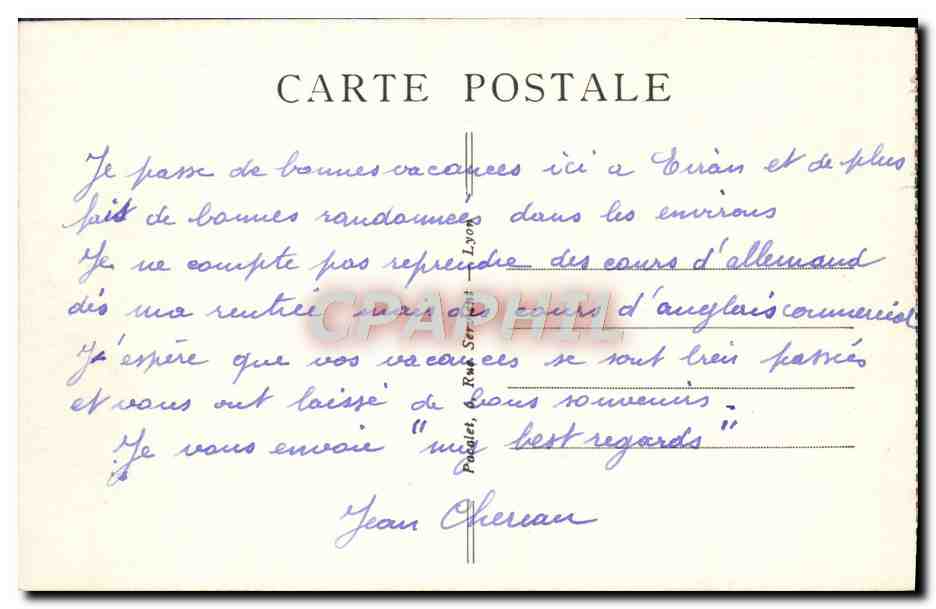 CARTE POSTALE
Je passe de bonnes vacances ici a Eiràn et de plus
fait de bonnes randonnées dans les environs
Je ne compte pas reprendre des cours d'allemand
dès ma rentrée mais des cours d'anglais commercial
J'espère que vos vacances se sont bien passées
et vous ont laissé de bons souvenirs.
Je vous envoie "my best regards"
Jean Chereau
Pocglet, 6, Rue Servient — Lyon
CPAPHIL